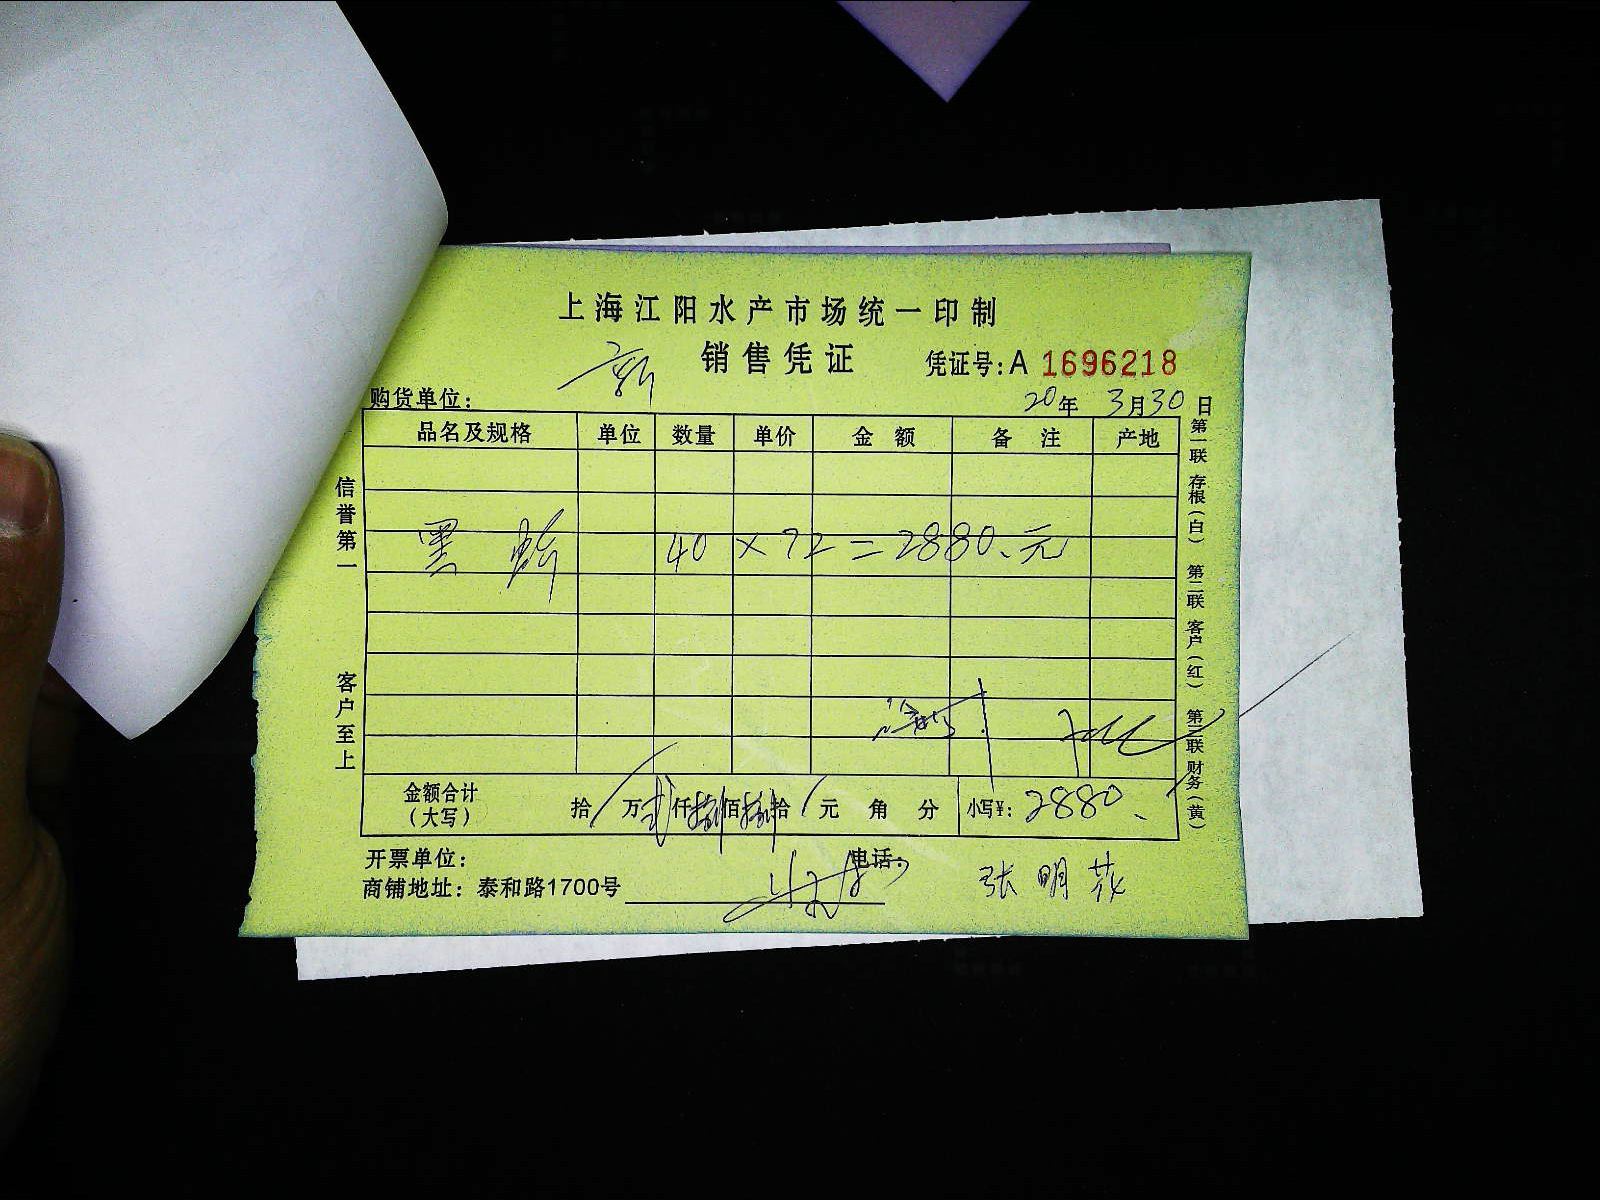 上海江阳水产市场统一印制
销售凭证 凭证号:A 1696218
购货单位: 20年 3月30日
品名及规格 单位 数量 单价 金额 备注 产地
黑 40×72=2880.元
金额合计（大写） 拾/万贰仟捌佰捌拾/元角分 小写¥: 2880.
开票单位: 电话:
商铺地址: 泰和路1700号 张明花
信誉第一 客户至上
第一联 存根(白) 第二联 客户(红) 第三联 财务(黄)